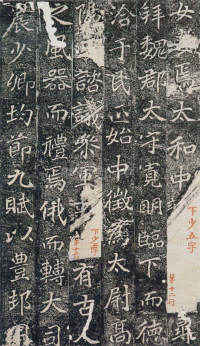 女焉太和中
拜魏郡太守寬明臨下而德
洽于民正始中徵爲太尉高
陽王諮議參軍事有古人
之風器而禮焉俄而轉大司
農少卿均節九賦以豐邦
下少五字
第十二行
下少一字